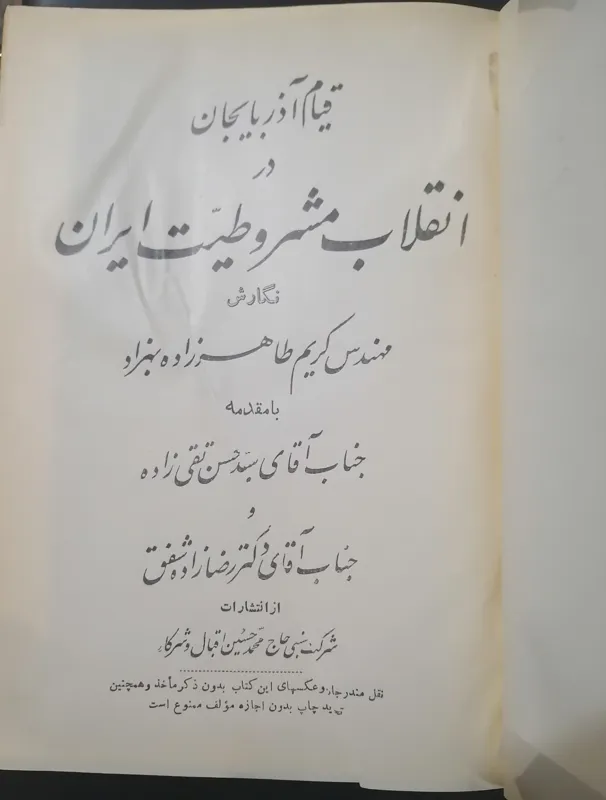 قیام آذربایجان
در
انقلاب مشروطیّت ایران
نگارش
مهندس کریم طاهرزاده بهزاد
با مقدمه
جناب آقای سید حسن تقی زاده
و
جناب آقای دکتر رضازاده شفق
از انتشارات
شرکت نسبی حاج محمد حسین اقبال و شرکاء
نقل مندرجات و عکسهای این کتاب بدون ذکر مأخذ و همچنین
تجدید چاپ بدون اجازه مؤلف ممنوع است